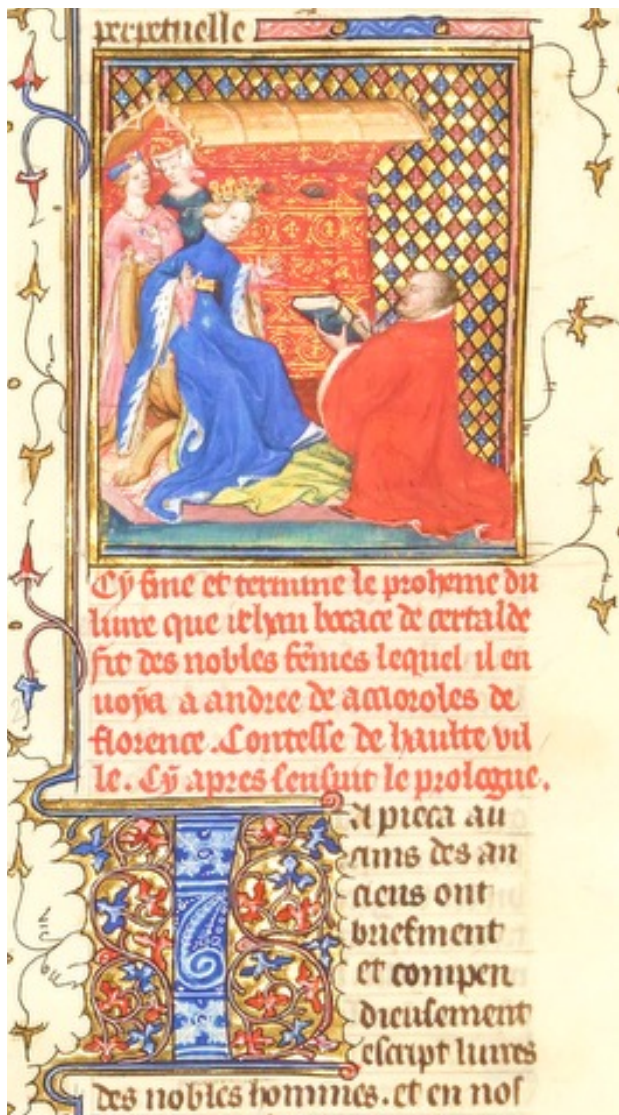 perpetuelle
Cy fine et termine le proheme du
liure que iehan bocace de certalde
fit des nobles fem̄es lequel il en
uoya a andree de accioroles de
florence. Contesse de haulte vil
le. Cy apres sensuit le prologue.
Ia pieca au
cuns des an
ciens ont
briefment
et compen
dieusement
escript liures
des nobles hommes. et en nos